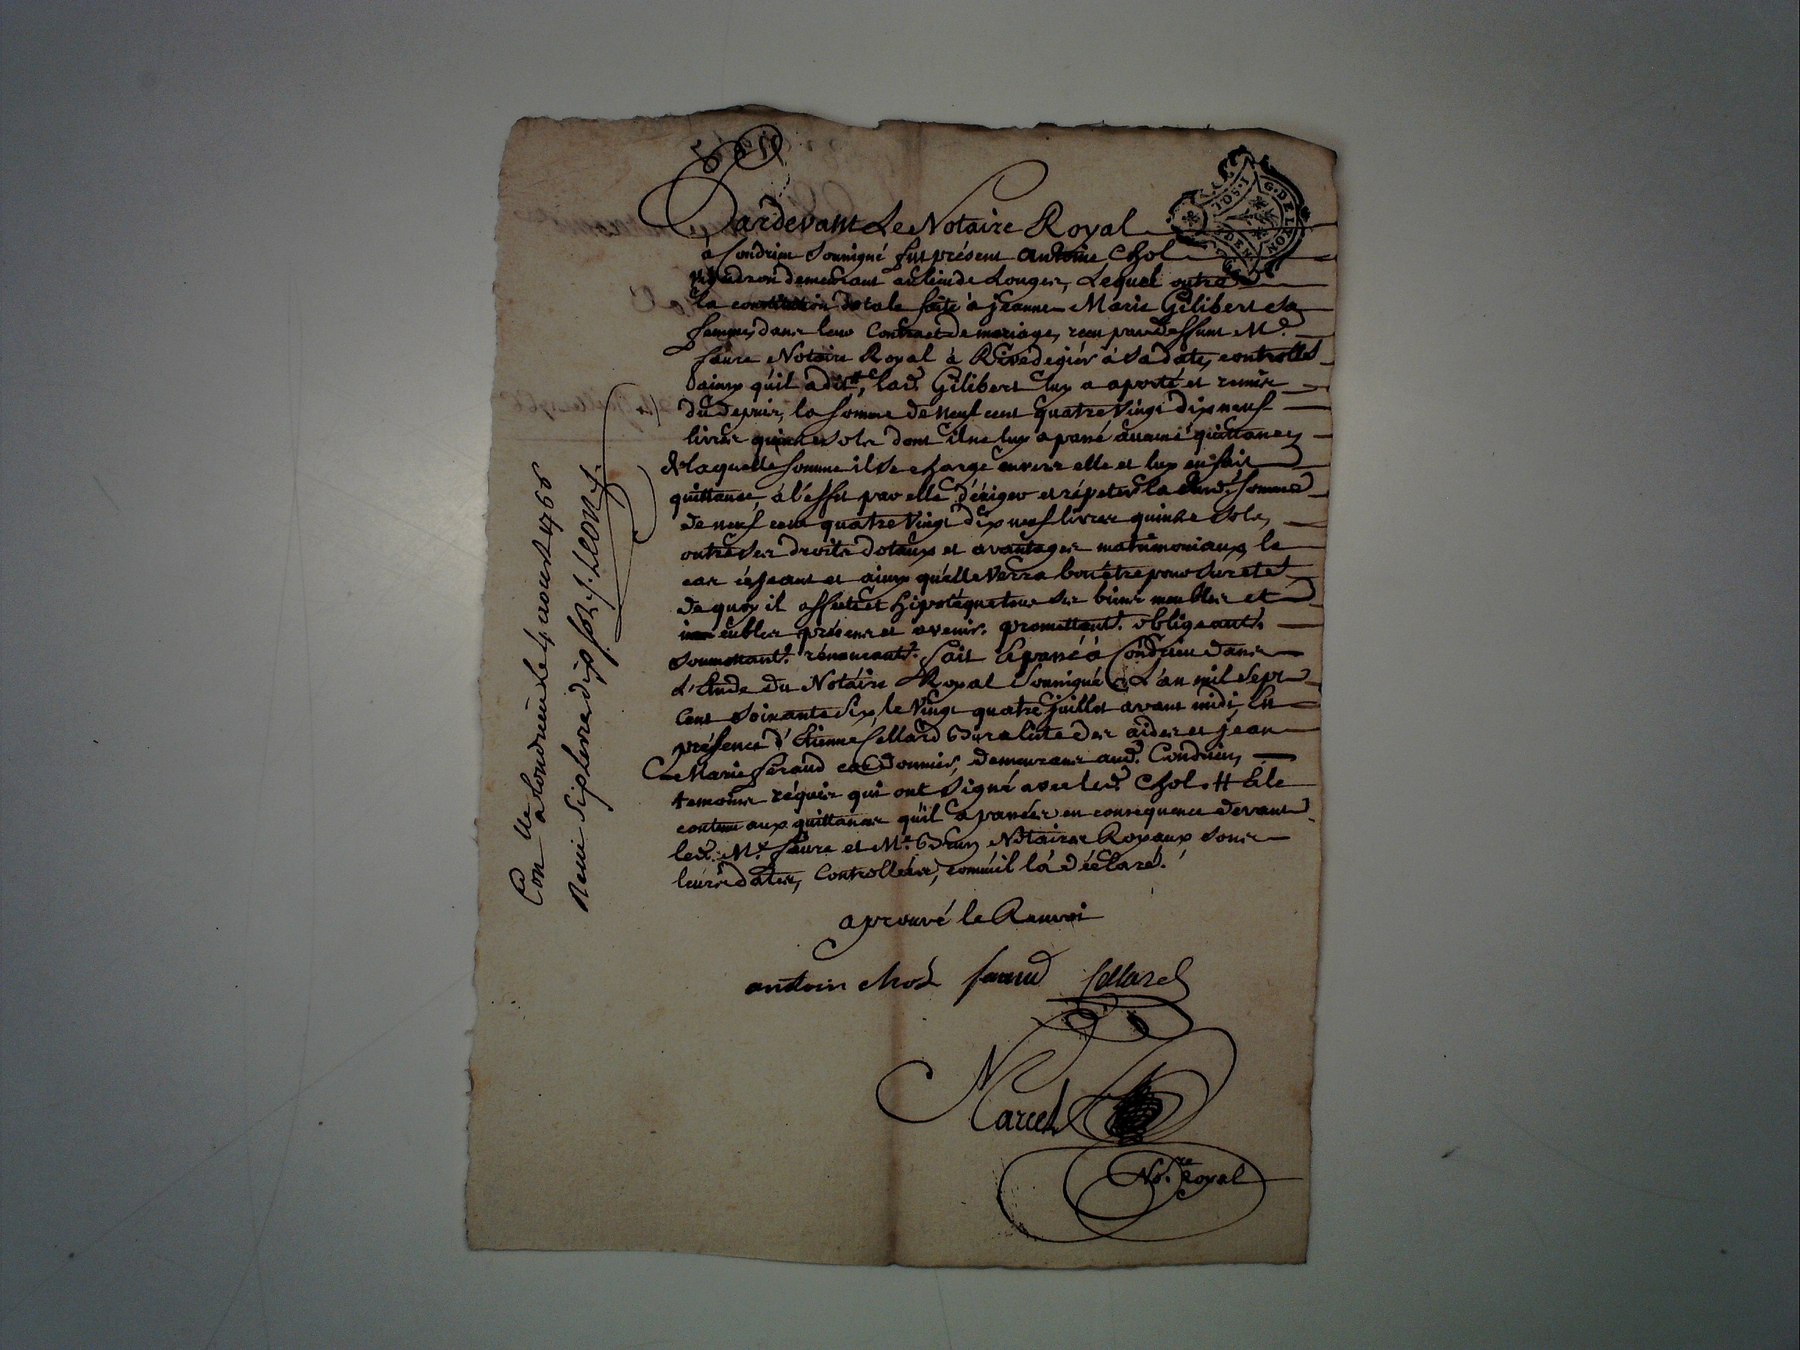 Pardevant Le Notaire Royal
à Condrieu soussigné fut présent antoine Chol
vigneron demeurant au lieu de Longes, Lequel outre
la constitution dotale faite à jeanne Marie Gilibert sa
femme, dans leur Contract de mariage, recu par deffunt Me.
faure Notaire Royal à Rivedegier à sa date, controllé
ainsy qu'il a dit, lad. Gilibert luy a aporté et remis
du depuis, la somme de neuf cent quatre vingt dix neuf
livres quinze sols dont il ne luy a passé aucune quittance,
de laquelle somme il se charge envers elle et luy en fait
quittance, à l'effet par elle d'éxiger et répeter la somme
de neuf cent quatre vingt dix neuf livres quinze sols,
outre ses droits dotaux et avantages matrimoniaux, le
cas échéant et ainsy qu'elle verra bon être pour sureté
de quoy il affecte et hipotèque tous ses biens meubles et
immeubles présens et avenir. promettant. obligeant.
soumettant. rénoncant. fait et passé à Condrieu dans
l'étude du Notaire Royal soussigné L'an mil sept
cent soixante six, le vingt quatre juillet avant midi, En
présence d'Etienne Cellard Buraliste des aides et jean
Marie feraud cordonnier, demeurans aud. Condrieu,
temoins réquis qui ont signé avec led. Chol. # Et le
contenu aux quittances qu'il a passées en consequence devant
led. Me. faure et Me. Brun Notaires Royaux sous
leurs dates, Controllées, comme il l'a déclaré.
aprouvé le Renvoi
antoin chol feraud Cellard
Marcel
No.re Royal
Con.lle a Condrieu le 4 aoust 1766
Recu six livres dix sols
G. DE LYON